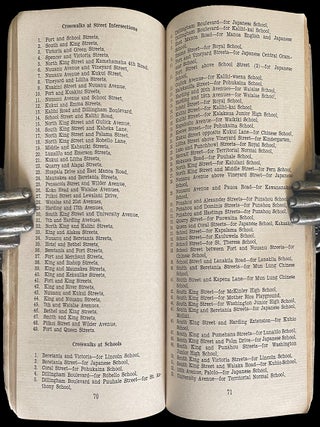 Crosswalks at Street Intersections
1. Fort and School Streets,
2. South and King Streets,
3. Victoria and Green Streets,
4. Spencer and Victoria Streets,
5. North King Street and Kamehameha 4th Road,
6. Nuuanu Avenue and Vineyard Street,
7. Nuuanu Avenue and Kukui Street,
8. Vineyard and Liliha Streets,
9. Kuakini Street and Nuuanu Avenue,
Fort and Kuakini Streets,
Nuuanu Avenue and School Street,
Kukui and Emma Streets,
Kalihi Road and Dillingham Boulevard,
School Street and Kalihi Road,
North King Street and Gulick Avenue,
South King Street and Kaheka Lane,
North King Street and Palama Street,
North King Street and Robello Lane,
Middle and Kahauiki Streets,
Lunalilo and Emerson Streets,
Kukui and Liliha Streets,
Quarry and Alapai Streets,
Huapala Drive and East Manoa Road,
Maunakea and Beretania Streets,
Pensacola Street and Wilder Avenue,
Koko Head and Waialae Avenues,
Piikoi Street and Lewalani Drive,
Waialae and 21st Avenues,
Harding and 17th Avenues,
South King Street and University Avenue,
7th and Harding Avenues,
North King and Kalihi Streets,
King and Alakea Streets,
Nuuanu and Beretania Streets,
Hotel and Bethel Streets,
Beretania and Fort Streets,
Fort and Merchant Streets,
King and Bishop Streets,
King and Maunakea Streets,
King and Kekaulike Streets,
Fort and King Streets,
King and River Streets,
Nuuanu and Kukui Streets,
King and Nuuanu Streets,
7th and Waialae Avenues,
Bethel and King Streets,
Smith and King Streets,
Piikoi Street and Wilder Avenue,
Fort and Queen Streets.
Crosswalks at Schools
1. Beretania and Victoria—for Lincoln School,
2. Beretania Street—for Japanese School,
3. Coral Street—for Pohukaina School,
4. Dillingham Boulevard—for Robello School,
5. Dillingham Boulevard and Puuhale Street—for St.
thony School,
70
Boulevard—for Japanese School,
Boulevard—for Kalihi-kai School,
Road—for Manoa English and Japanese
Street—for Royal School,
Street and Vineyard Street—for Japanese Central
Street above School Street (2)—for Japanese
Street—for Kalihi-waena School,
Street—for Pohukaina School,
Avenue and 10th Avenue—for Waialae School,
and 19th Avenue—for Waialae School,
Street—for Royal School,
Street—for Kalihi-kai School,
Street—for Kalakaua Junior High School,
Avenue—for Waikiki School,
Street—for Pohukaina School,
Street opposite Kukui Lane—for Chinese School,
Street and Vineyard Street—for Kindergarten,
and Punchbowl Streets—for Royal School,
Street—for Territorial Normal School,
Road—for Puuhale School,
Street—for Kaiulani School,
North King Street and Middle Street—for Fern School,
Avenue above Vineyard Street—for Japanese
School,
Avenue and Pauoa Road—for Kawananakoa
School,
Punahou and Alexander Streets—for Punahou School,
Punahou and Dominis Streets—for Punahou School,
Punahou and Hastings Streets—for Punahou School,
Quarry Street—for Parochial School,
Queen and Coral Streets—for Japanese School, Kakaako
School Street—for Kapalama School,
School Street—for Kauluwela School,
School Street—for St. Theresa School,
School Street between Fort and Nuuanu Streets—for
School,
School Street and Lanakila Road—for Lanakila School,
South and Beretania Streets—for Mun Lung Chinese
School,
South Street and Kapena Lane—for Mun Lung Chinese
School,
South King Street—for McKinley High School,
South King Street—for Mother Rice Playground,
South King Street—for Washington Junior High School,
South King and Beretania Streets—for Japanese School,
South King Street and Harding Extension—for Kuhio
School,
South King and Artesian Streets—for Lunalilo School,
South King Street and Palm Drive—for Japanese School,
South King and Punahou Streets—for Washington
Junior High School,
South King and Victoria Streets—for Lincoln School,
South King Street and Waiaka Road—for Kuhio School,
University Avenue—for Territorial Normal School,
71